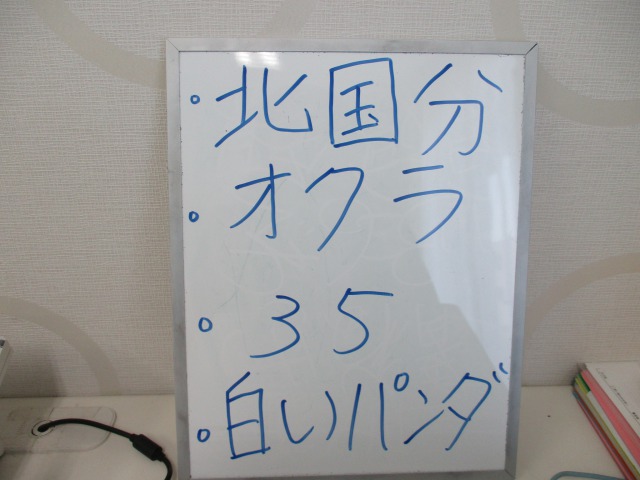 。北国分
。オクラ
。35
。白いパンダ